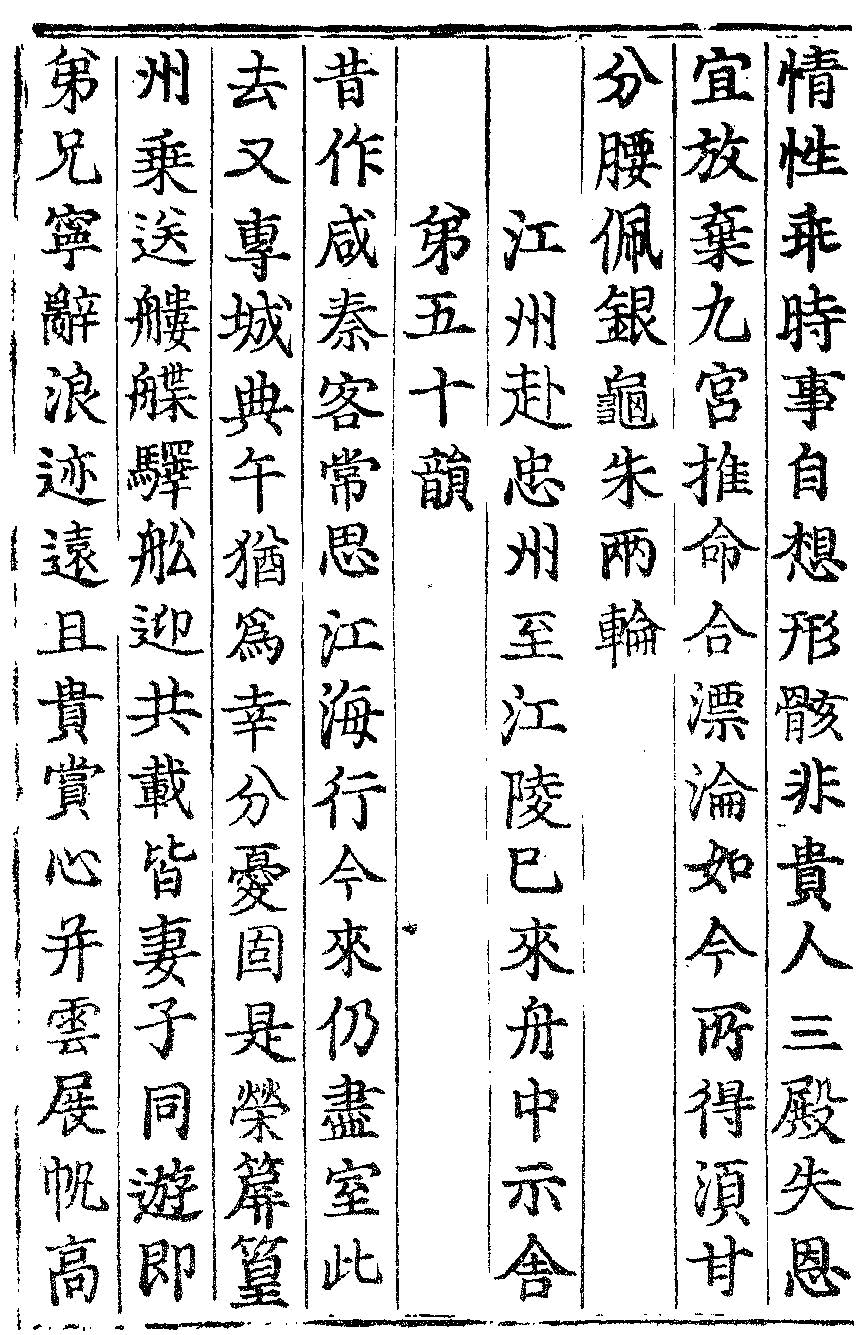 情性乖時事自想形骸非貴人三殿失恩
宜放棄九宮推命合漂淪如今所得須甘
分腰佩銀龜朱兩輪
江州赴忠州至江陵已來舟中示舍
弟五十韻
昔作咸秦客常思江海行今來仍盡室此
去又專城典午猶為幸分憂固是榮簱篁
州乘送艛艓驛舩迎共載皆妻子同遊即
弟兄寧辭浪迹遠且貴賞心并雲展帆高